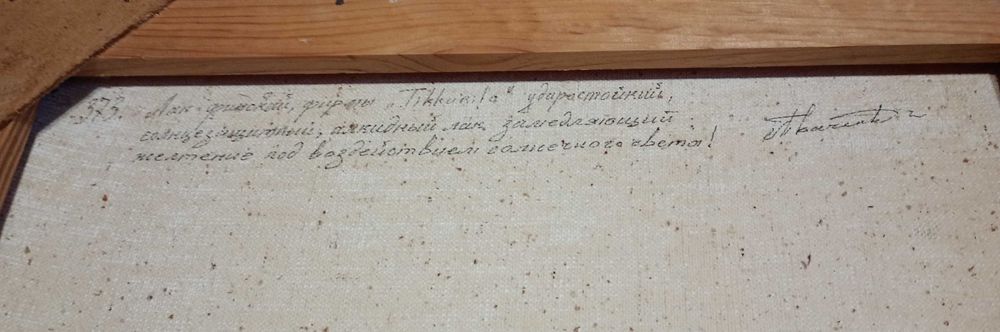 373. Лак-финский, фирмы "Tikkurila" ударостойкий,
солнцезащитный, алкидный лак, замедляющий
желтение под воздействием солнечного света!